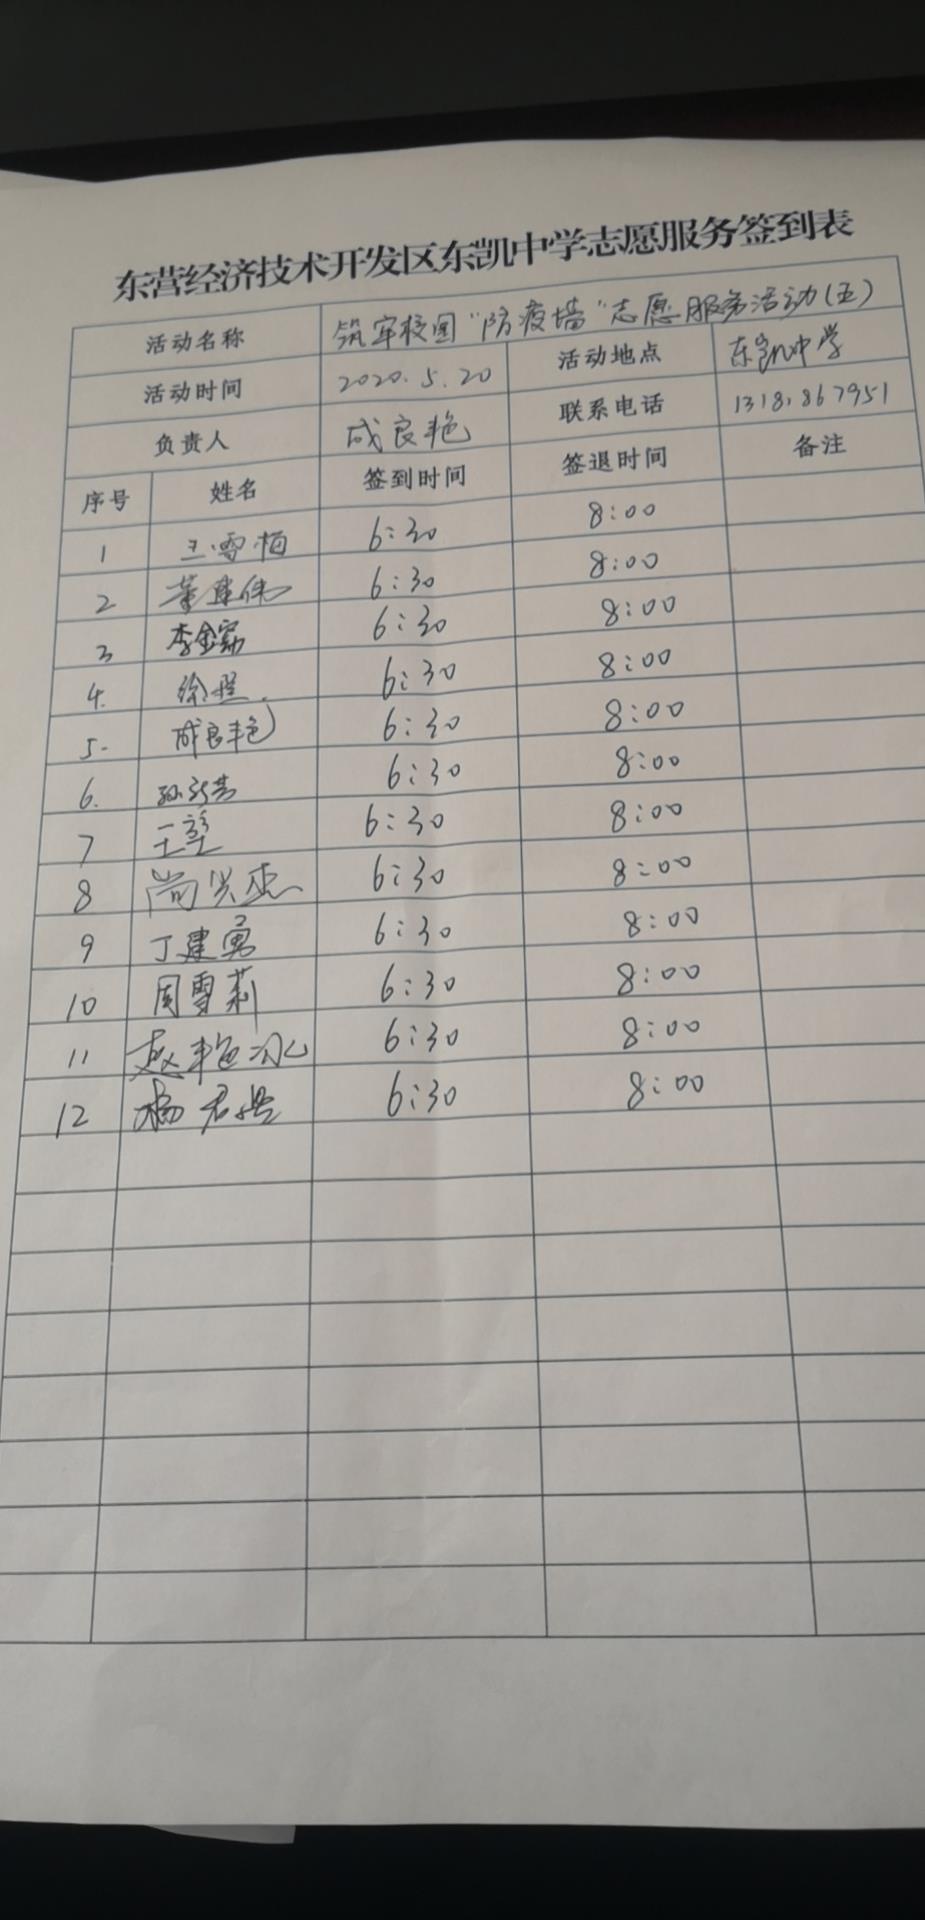 东营经济技术开发区东凯中学志愿服务签到表
活动名称 筑牢校园“防疫墙”志愿服务活动(五)
活动时间 2020.5.20 活动地点 东凯中学
负责人 成良艳 联系电话
序号 姓名 签到时间 签退时间 备注
1 王雪梅 6:30 8:00
2 董建伟 6:30 8:00
3 李金富 6:30 8:00
4. 徐 6:30 8:00
5. 成良艳 6:30 8:00
6. 孙 6:30 8:00
7 王 6:30 8:00
8 尚 6:30 8:00
9 丁建勇 6:30 8:00
10 周雪莉 6:30 8:00
11 赵艳冰 6:30 8:00
12 杨君 6:30 8:00